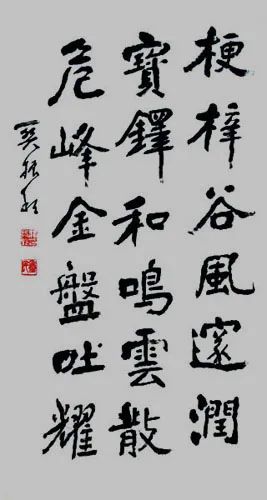 梗梓谷風邃潤
寶鐸和鳴雲散
危峰金盤吐耀